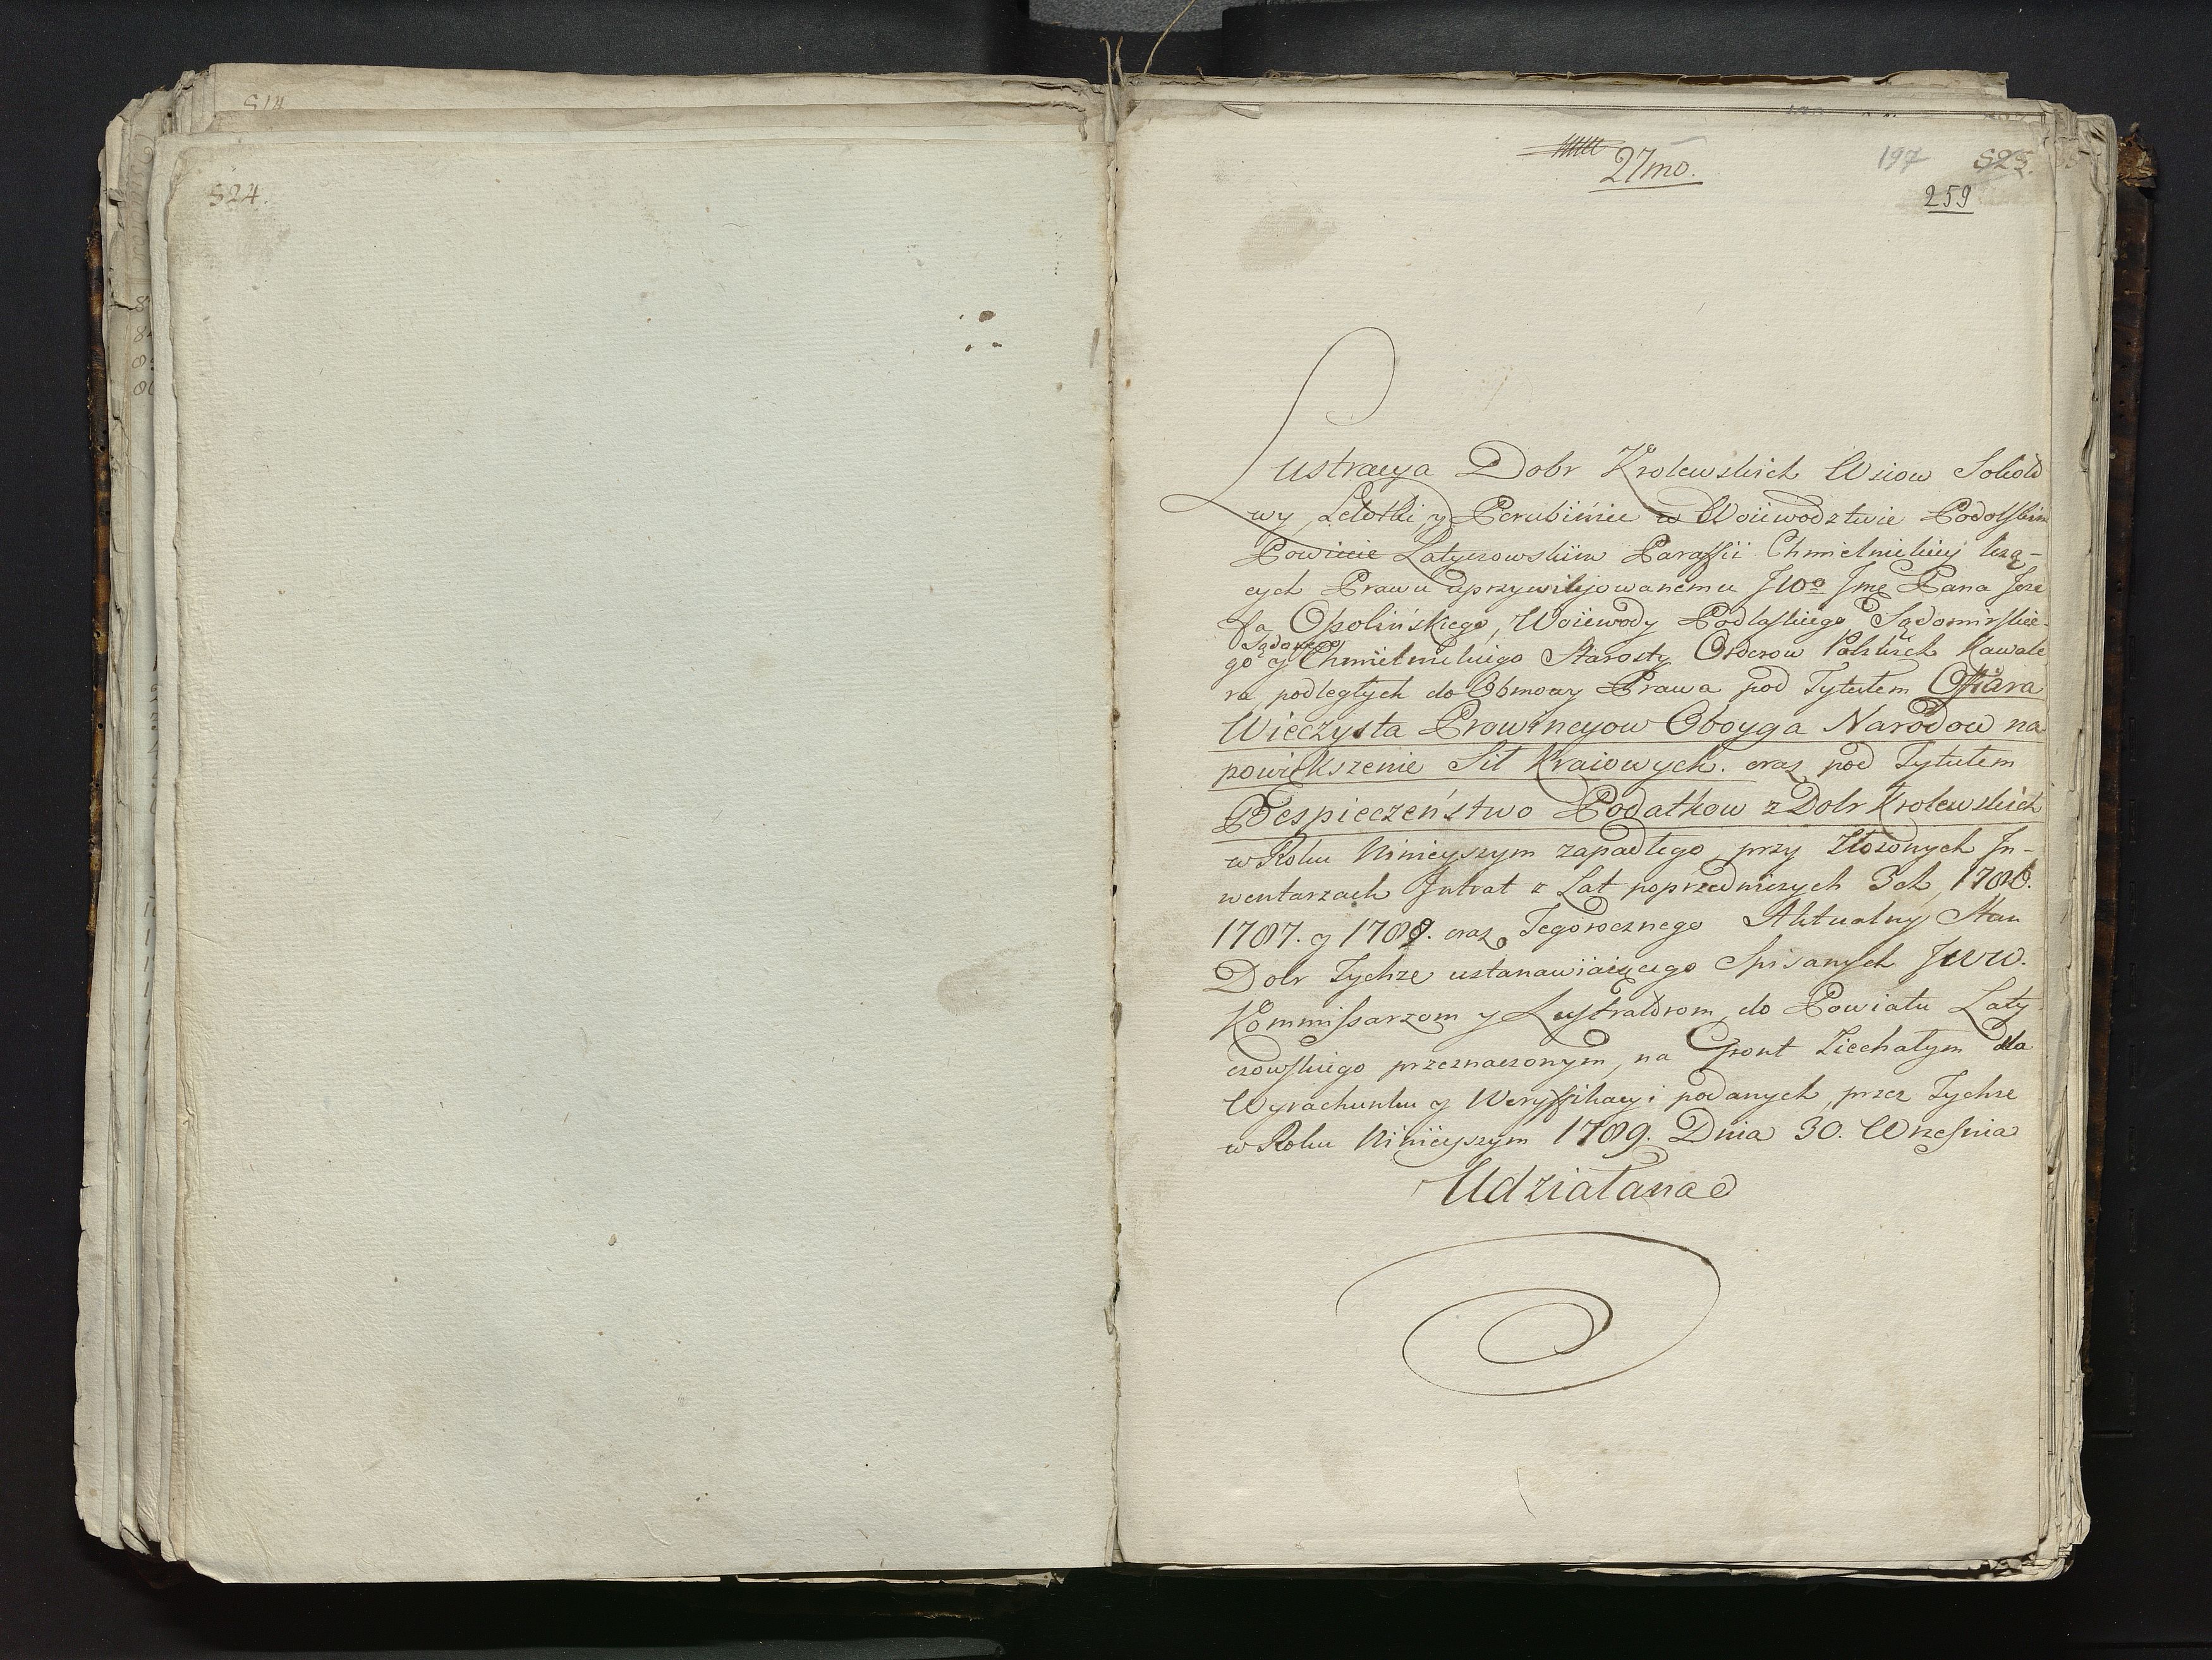 524.
27mo.
197 525.
259
Lustracya Dobr Krolewskich Wsiow Sokoło
wy, Lelotki, y Perubińiec w Woiewodztwie Podolskim
Powiecie Latyczowskiim Paraffii Chmielnickiey leżą-
cych Prawu uprzywilejowanemu JWo Jmę Pana Joze
fa Ossolińskiego, Woiewody Podlaskiego, Sądomirskie-
Sądowego
go y Chmielnickiego Starosty Orderow Polskich Kawale
ra, podległych do Obmowy Prawa pod Tytułem Offiara
Wieczysta Prowincyow Oboyga Narodow na
powiększenie Sił Kraiowych. oraz pod Tytułem
Bespieczeństwo Podatkow z Dobr Krolewskich
w Roku Ninieyszym zapadłego, przy Złożonych In-
wentarzach Intrat z Lat poprzedniczych 3ch, 1786.
1787. y 1788. oraz Tegorocznego Aktualny Stan
Dobr Tychże ustanawiaiącego Spisanych JWW.
Kommissarzom y Lustratorom, do Powiatu Laty
czowskiego przeznaczonym, na Gront Ziechałym dla
Wyrachunku y Weryffikacyi podanych, przez Tychże
w Roku Ninieyszym 1789. Dnia 30. Wrzesnia
Udziałana